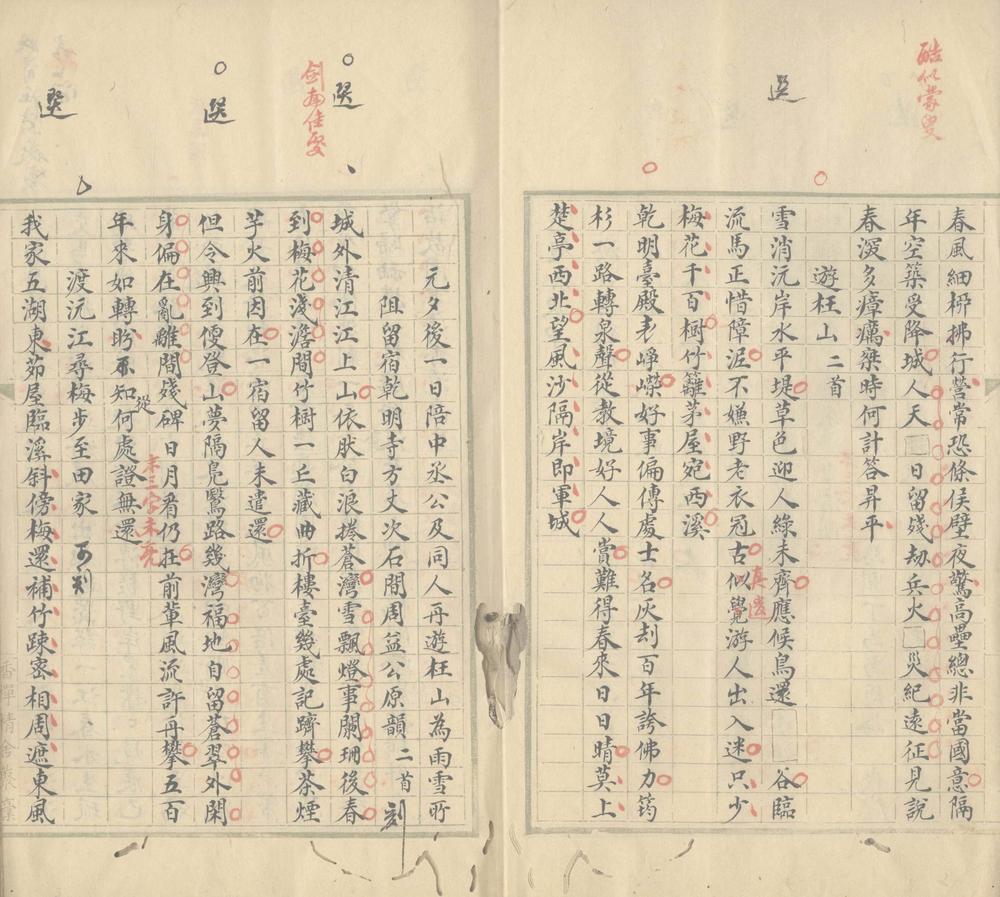 酷似蒙叟
選
春風細柳拂行營常恐條侯壁夜驚高壘總非當國意隔
年空築受降城人天□日留殘劫兵火□災紀遠征見說
春深多瘴癘桀時何計答昇平
遊枉山二首
雪消沅岸水平堤草色迎人綠未齊應候鳥還□谷臨
流馬正惜障泥不嫌野老衣冠古似覺游人出入迷只少
梅花千百樹竹籬茅屋宛西溪
乾明臺殿耒崢嶸好事偏傳處士名灰刦百年誇佛力筠
杉一路轉泉聲從教境好人人賞難得春來日日晴莫上
楚亭西北望風沙隔岸即軍城
選
劍南佳處
選
選
元夕後一日陪中丞公及同人再遊枉山為雨雪所
阻留宿乾明寺方丈次石間周益公原韻二首 刻
城外清江江上山依肰白浪捲蒼灣雪飄燈事闌珊後春
到梅花淺澹間竹樹一丘藏曲折樓臺幾處記躋攀茶煙
芋火前因在一宿留人未遣還
但令興到便登山夢隔鳧鷖路幾灣福地自留蒼翠外閑
身偏在亂離間殘碑日月看仍在前輩風流許再攀五百
年來如轉盻不知從何處證無還
末三字未亮
渡沅江尋梅步至田家 可刻
我家五湖東茆屋臨溪斜傍梅還補竹疎密相周遮東風